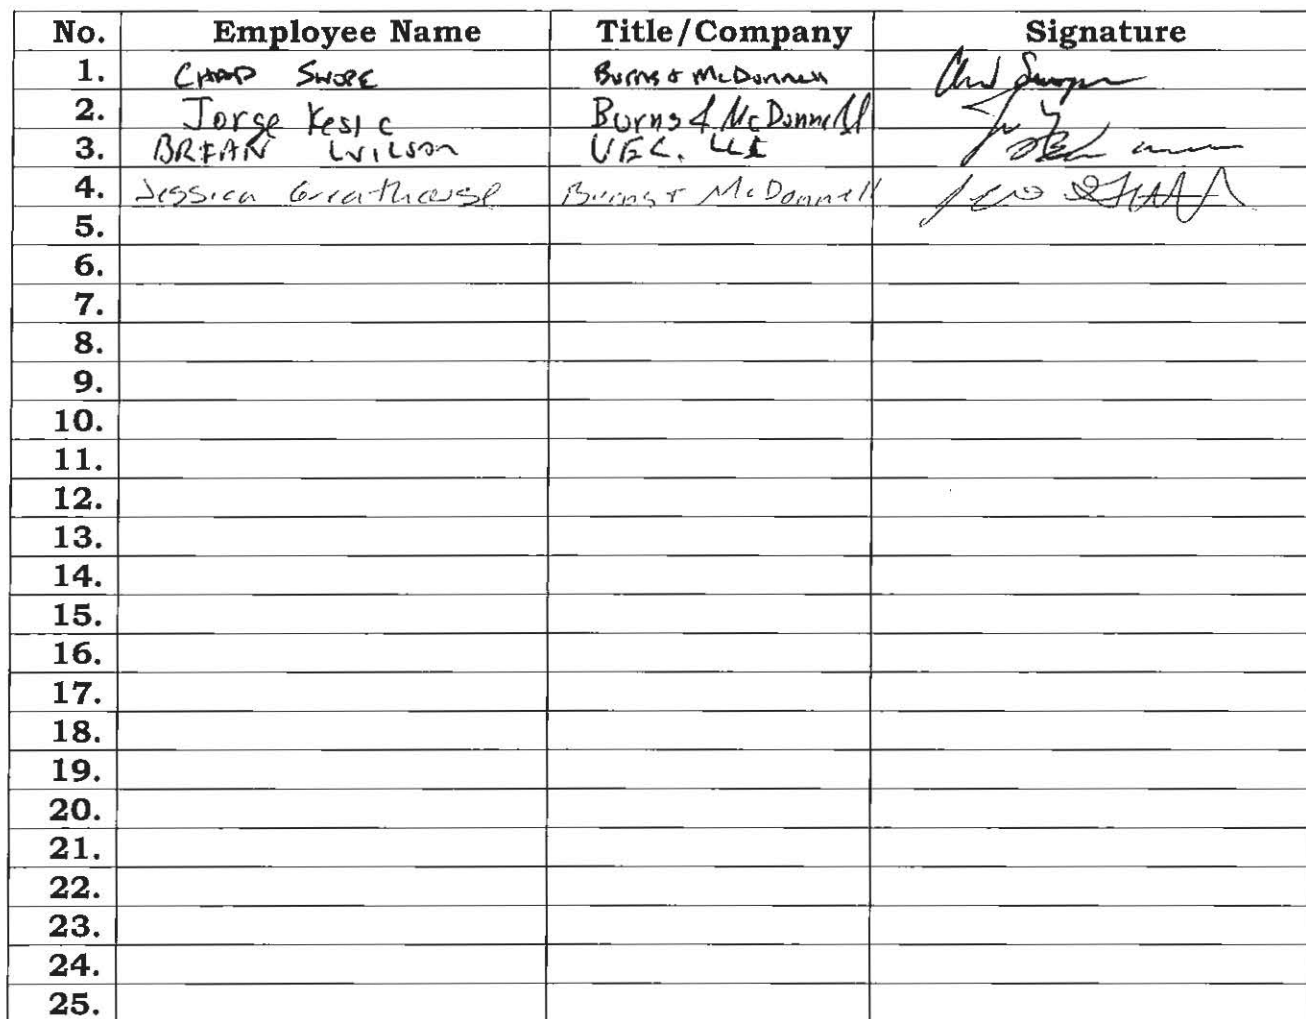 No. Employee Name Title/Company Signature
1. CHAD SWOPE Burns & McDonnell Chad Swope
2. Jorge Kesic Burns & McDonnell
3. BRIAN WILSON
4. Jessica Greathouse Burns & McDonnell
5.
6.
7.
8.
9.
10.
11.
12.
13.
14.
15.
16.
17.
18.
19.
20.
21.
22.
23.
24.
25.